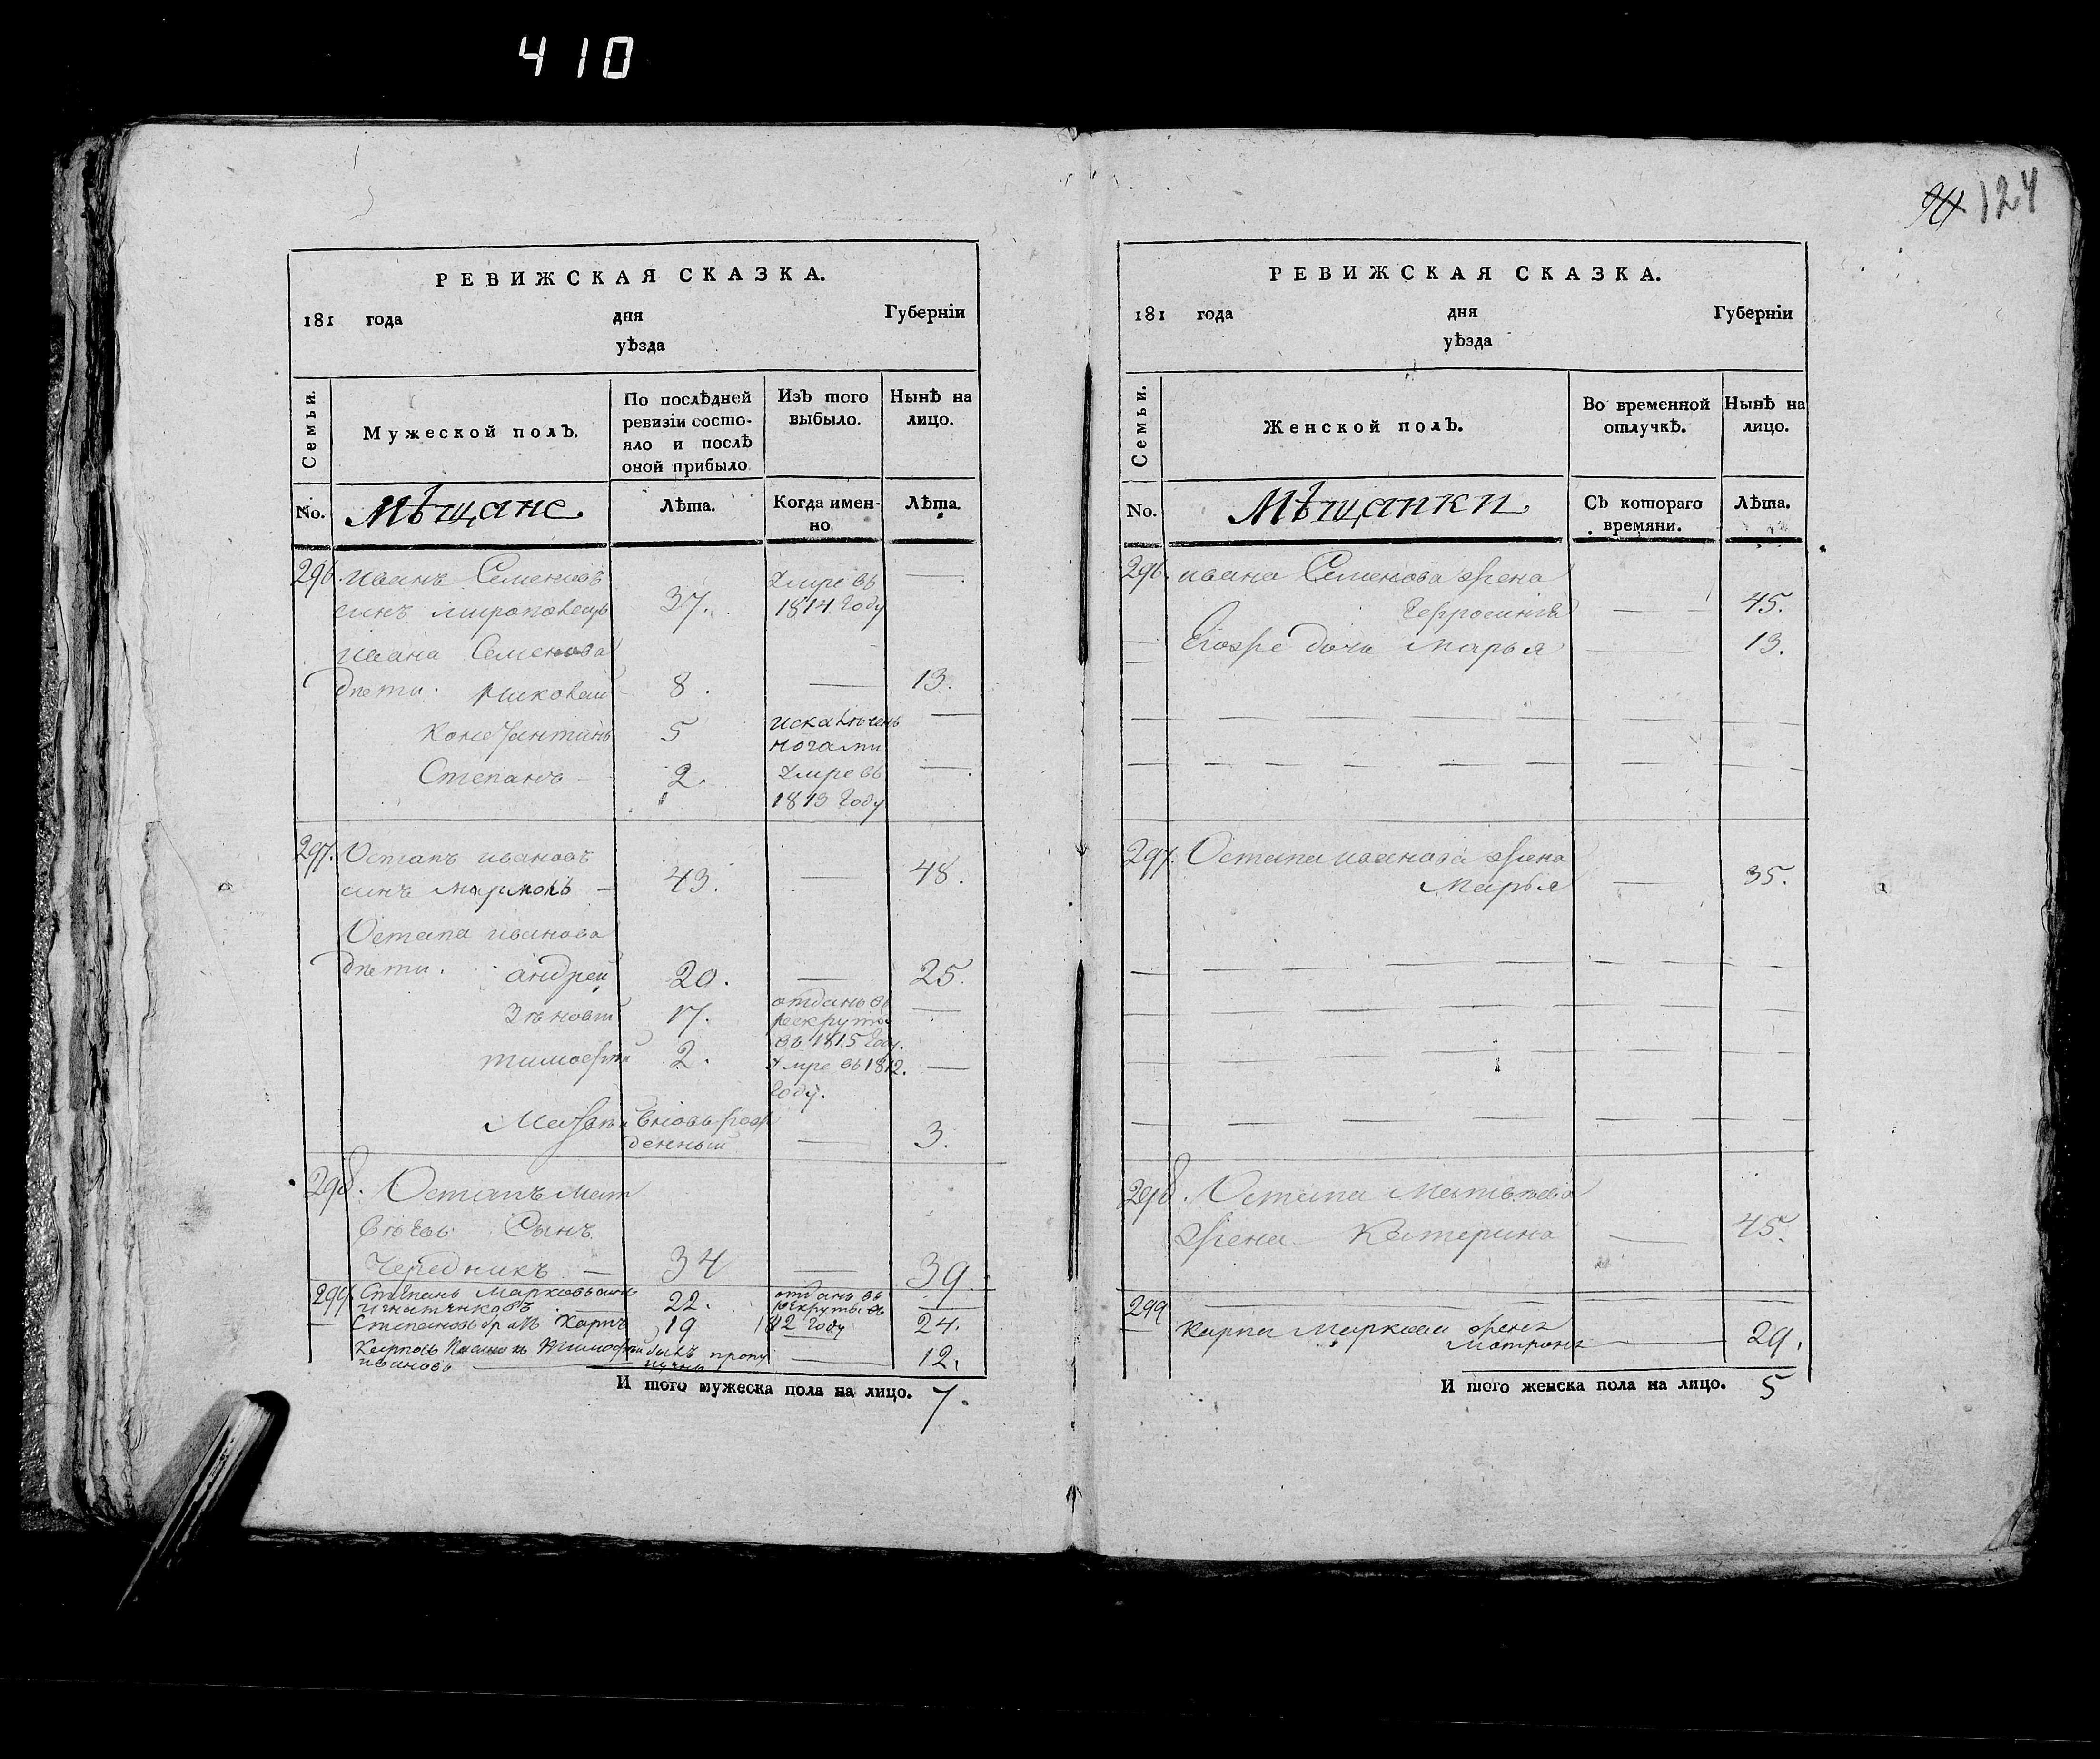 410
РЕВИЖСКАЯ СКАЗКА.
181 года дня Губерніи
уѣзда
Семьи.
Мужеской полъ.
По послѣдней ревизіи состо-
яло и послѣ
оной прибыло
Изъ того выбыло.
Нынѣ на лицо.
No.
Мѣщане
Лѣта.
Когда имен-
но
Лѣта.
296. иванъ Семеновъ Умре въ —
синъ мироповецъ 37. 1814 году
ивана Семенова
дѣти. Николай 8. — 13.
Констянтинъ 5 искалѣченъ —
ногами
Степанъ — 2. Умре въ —
1813 году
297. Остапъ ивановъ
синъ Мармолъ — 43. — 48.
Остапа иванова
дѣти. андрей 20. — 25.
Зѣновій 17. отданъ въ —
рекруты
въ 1815 году.
тимофей 2. Умре въ 1812. —
году.
Матвѣй вновь рож
денный — 3.
298. Остапъ Мат
вѣевъ Сынъ
Чередникъ — 34 — 39.
299. Степанъ Марковъ синъ 22. отданъ въ —
игнатенковъ рекруты въ
Степановъ братъ Карпъ 19 1812 году 24.
Карповъ Тимофей былъ пропу — 12.
ивановъ — щенъ
И того мужеска пола на лицо. 7.
94 124
РЕВИЖСКАЯ СКАЗКА.
181 года дня Губерніи
уѣзда
Семьи.
Женской полъ.
Во временной отлучкѣ.
Нынѣ на лицо.
No.
Мѣщанки
Съ котораго времяни.
Лѣта.
296. ивана Семенова жена
Ефросинія — 45.
— Егоже дочь Марья — 13.
297. Остапа иванова жена
Марья — 35.
298. Остапа Матвѣева
жена Катерина — 45.
299
— Карпа Маркова жена
Матрона — 29.
И того женска пола на лицо. 5